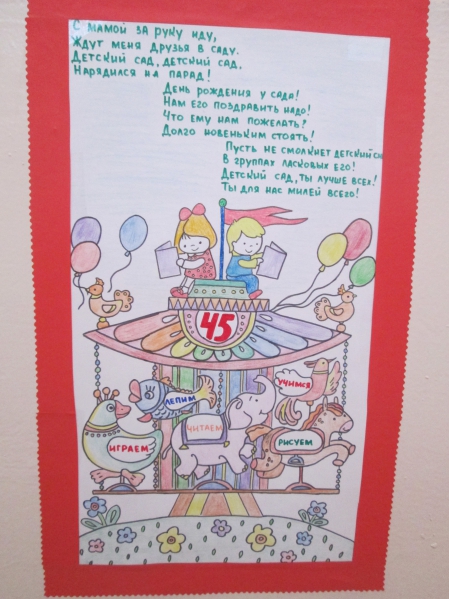 С мамой за руку иду,
Ждут меня друзья в саду.
Детский сад, детский сад,
Нарядился на парад!
День рождения у сада!
Нам его поздравить надо!
Что ему нам пожелать?
Долго новеньким стоять!
Пусть не смолкнет детский
В группах ласковых его!
Детский сад, ты лучше всех!
Ты для нас милей всего!
45
УЧИМСЯ
ЛЕПИМ
ЧИТАЕМ
ИГРАЕМ
РИСУЕМ